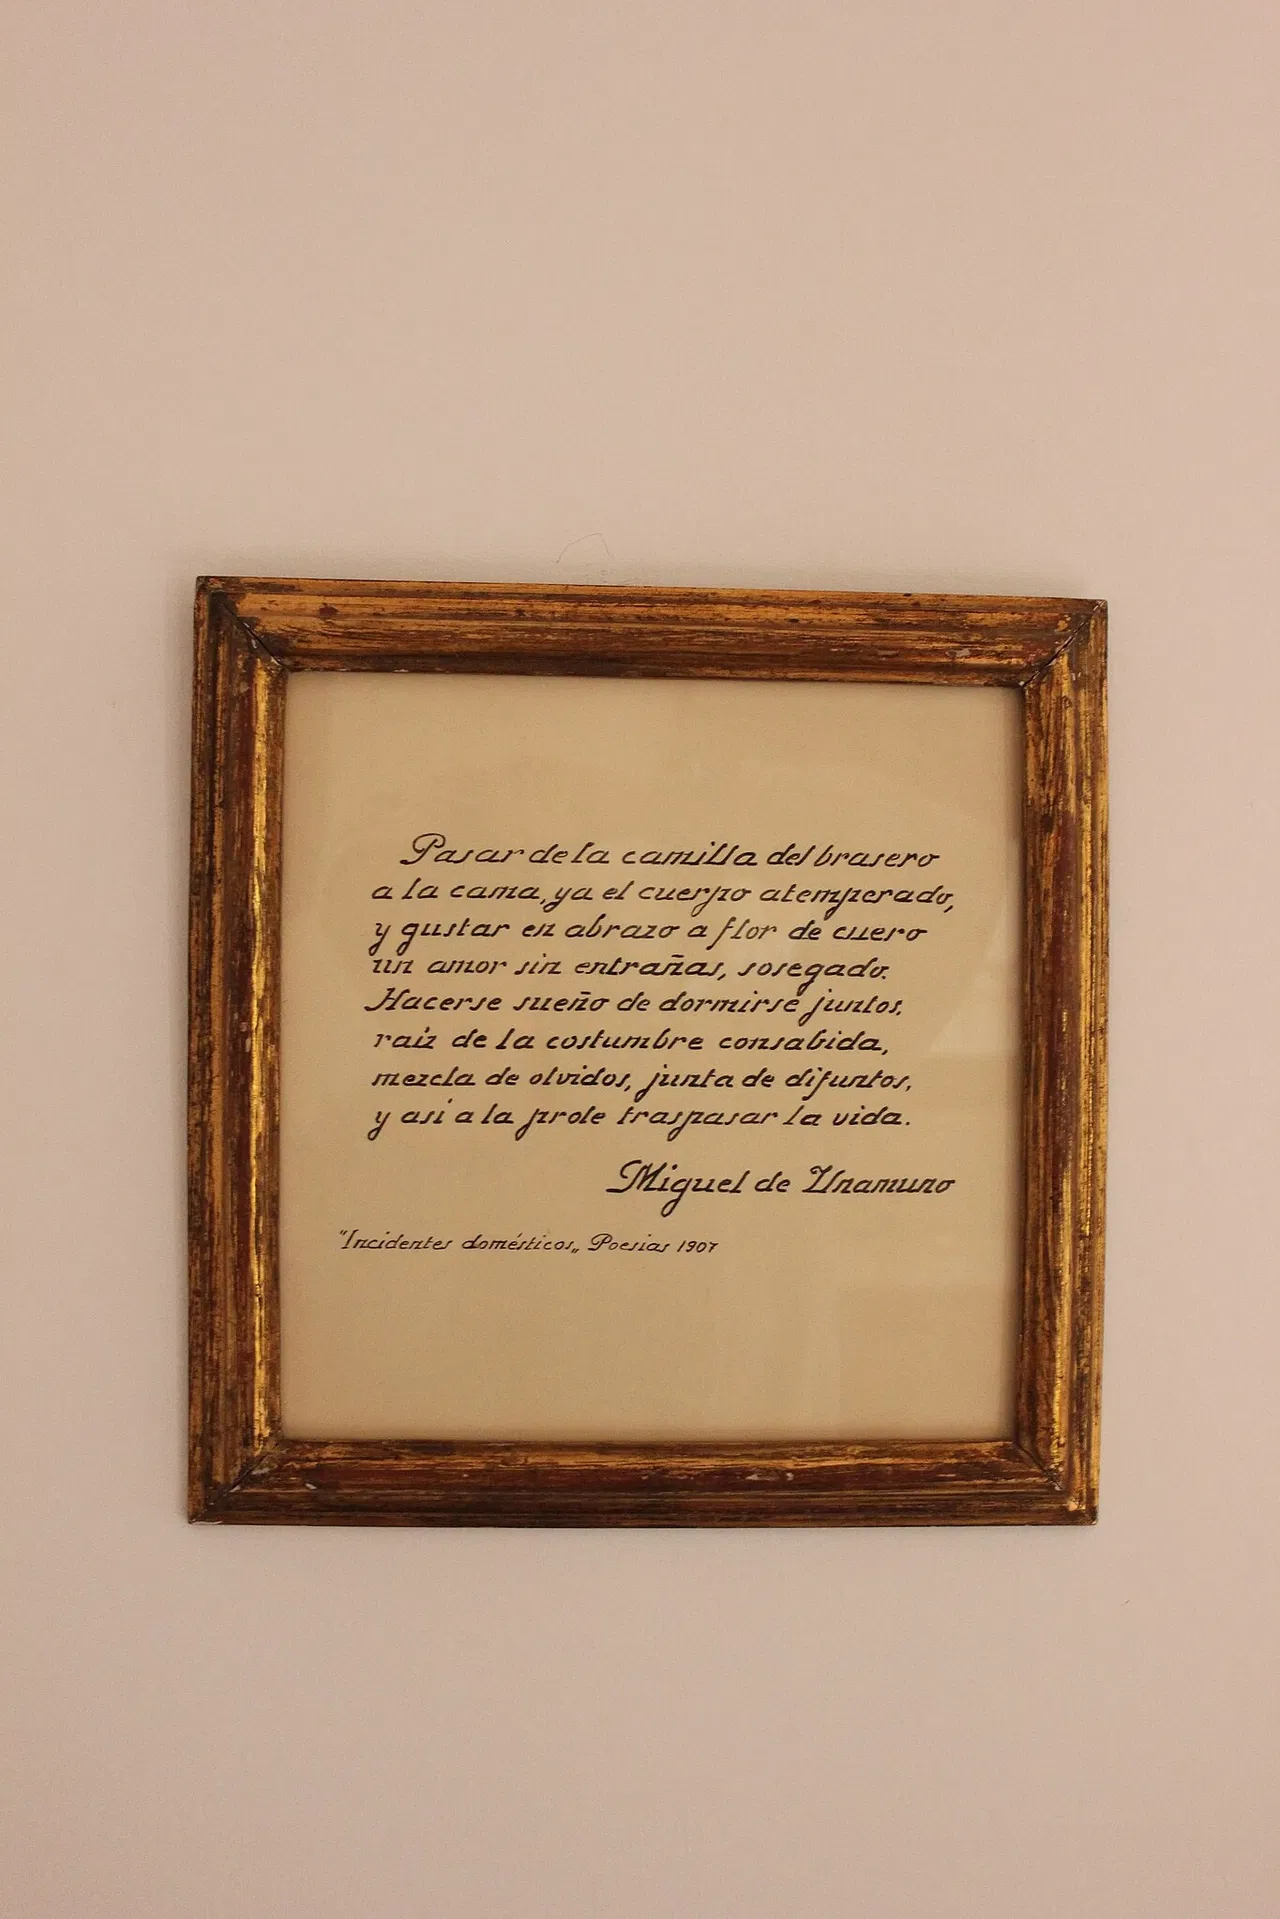 Pasar de la camilla del brasero
a la cama, ya el cuerpo atemperado,
y gustar en abrazo a flor de cuero
un amor sin entrañas, sosegado.
Hacerse sueño de dormirse juntos,
raíz de la costumbre consabida,
mezcla de olvidos, junta de difuntos,
y así a la prole traspasar la vida.
Miguel de Unamuno
"Incidentes domésticos„ Poesias 1907